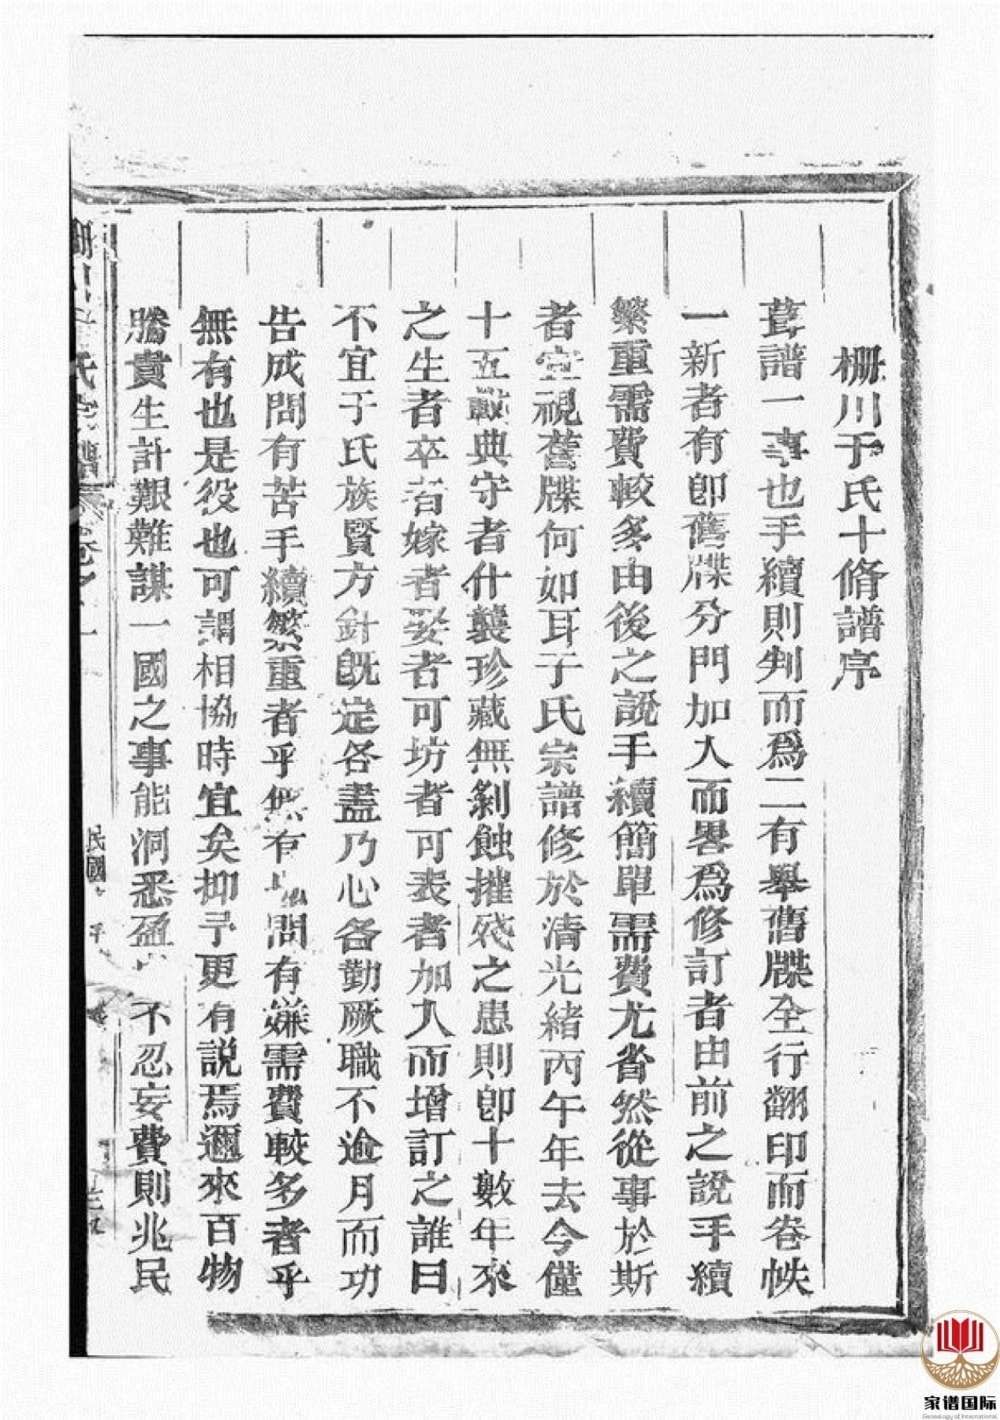 柵川于氏十脩譜序
葺譜一事也手續則判而爲二有舉舊牒全行翻印而卷帙
一新者有卽舊牒分門加入而畧爲修訂者由前之說手續
繁重需費較多由後之說手續簡單需費尤省然從事於斯
者宜視舊牒何如耳于氏宗譜修於清光緒丙午年去今僅
十五載典守者什襲珍藏無剝蝕摧殘之患則卽十數年來
之生者卒者嫁者娶者可坊者可表者加入而增訂之誰曰
不宜于氏族賢方針旣定各盡乃心各勤厥職不逾月而功
告成問有苦手續繁重者乎無有也問有嫌需費較多者乎
無有也是役也可謂相協時宜矣抑予更有說焉邇來百物
騰貴生計艱難謀一國之事能洞悉盈 不忍妄費則兆民
氏 譜 卷之一
民國
家谱国际
Genealogy of International